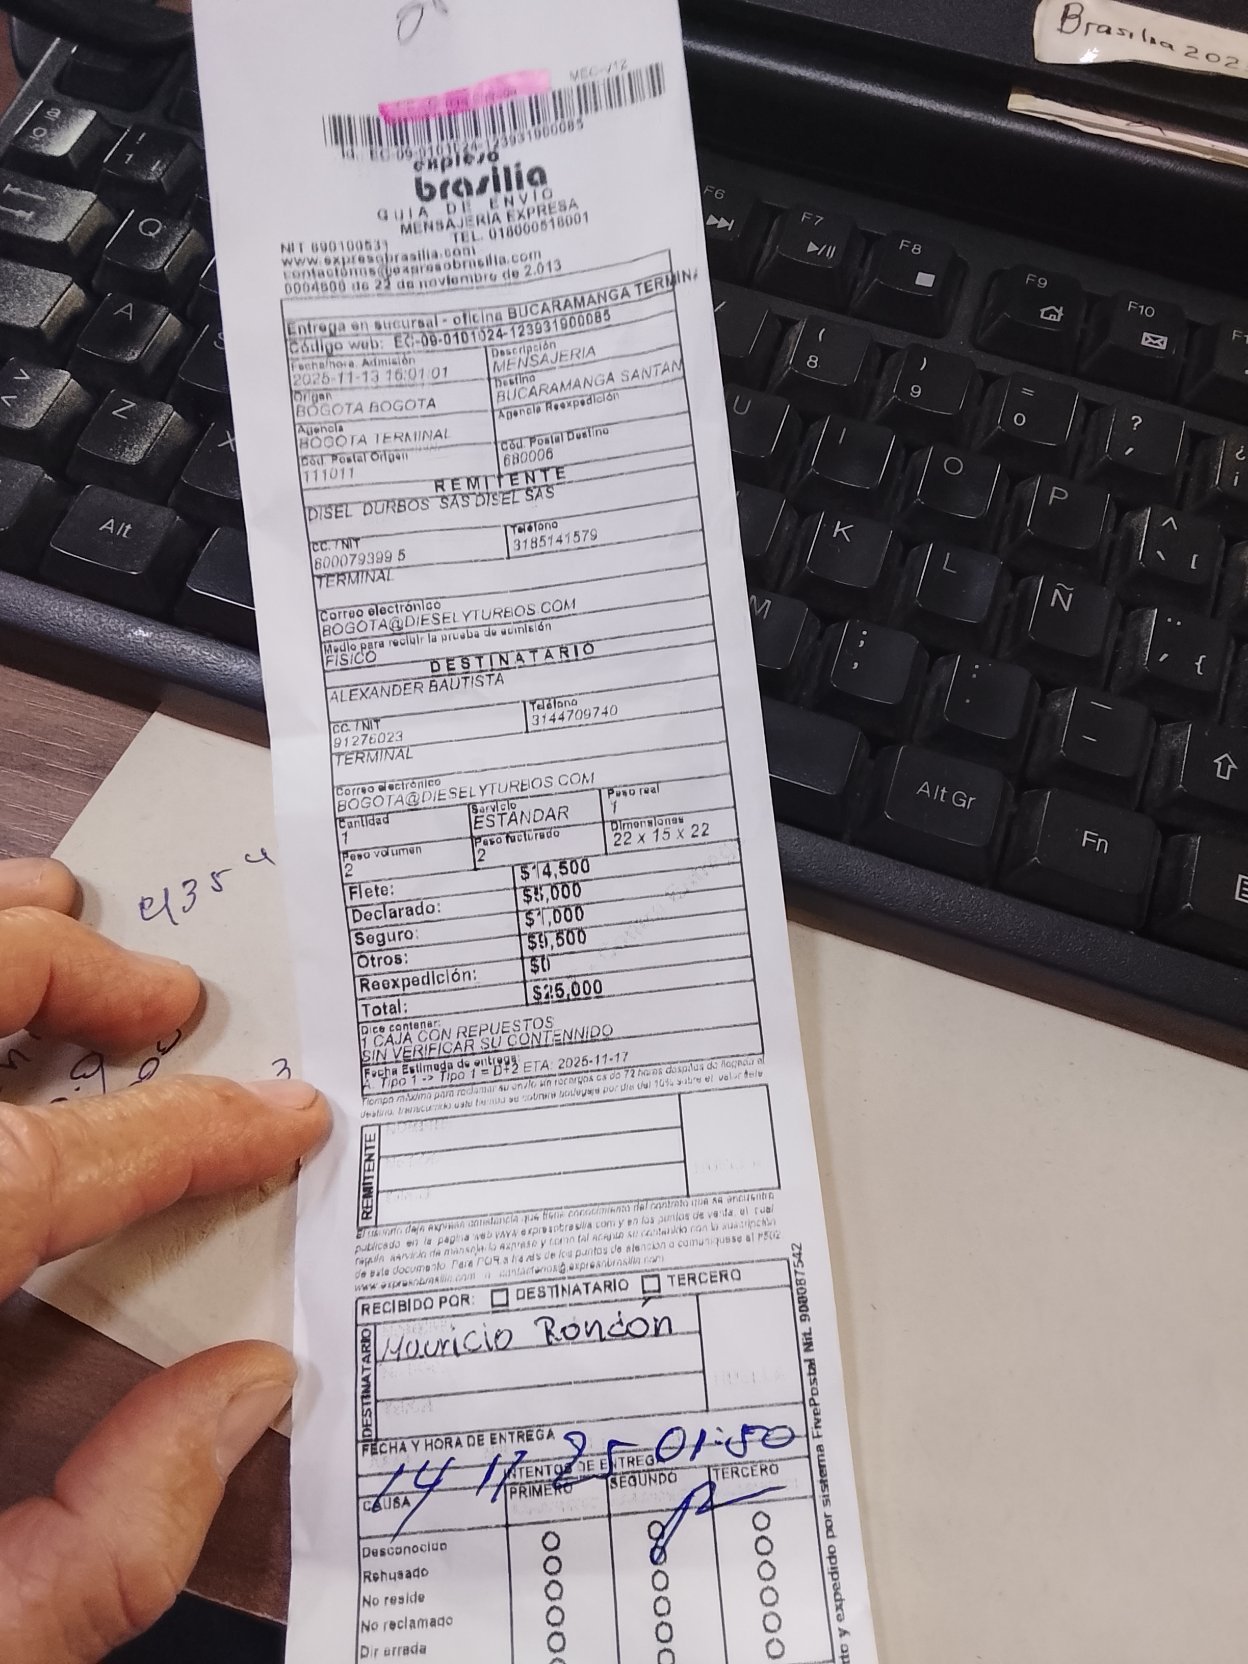 Brasilia 202
VEC-V12
Id. EC-09-0101024-123931900085
expreso
brasilia
GUIA DE ENVIO
MENSAJERIA EXPRESA
TEL. 018000518001
NIT 890100531
www.expresobrasilia.com
contactenos@expresobrasilia.com
0004800 de 22 de noviembre de 2.013
Entrega en sucursal - oficina BUCARAMANGA TERMINA
Código web: EC-09-0101024-123931900085
Fecha/hora. Admisión
2025-11-13 16:01:01
Descripción
MENSAJERIA
Origen
BOGOTA BOGOTA
Destino
BUCARAMANGA SANTAN
Agencia
BOGOTA TERMINAL
Agencia Reexpedición
Cód. Postal Origen
111011
Cód. Postal Destino
680006
REMITENTE
DISEL DURBOS SAS DISEL SAS
CC. / NIT
800079399 5
Teléfono
3185141579
TERMINAL
Correo electrónico
BOGOTA@DIESELYTURBOS.COM
Medio para recibir la prueba de admisión
FISICO
DESTINATARIO
ALEXANDER BAUTISTA
CC. / NIT
91276023
Teléfono
3144709740
TERMINAL
Correo electrónico
BOGOTA@DIESELYTURBOS.COM
Cantidad
1
Servicio
ESTANDAR
Peso real
1
Peso volumen
2
Peso facturado
2
Dimensiones
22 x 15 x 22
Flete: $14,500
Declarado: $5,000
Seguro: $1,000
Otros: $9,500
Reexpedición: $0
Total: $25,000
Dice contener:
1 CAJA CON REPUESTOS
SIN VERIFICAR SU CONTENNIDO
Fecha Estimada de entrega:
A. Tipo 1 -> Tipo 1 = D+2 ETA: 2025-11-17
Tiempo máximo para reclamar su envío sin recargos es de 72 horas después de llegada al
destino, transcurrido este tiempo se cobrará bodegaje por día del 10% sobre el valor flete
REMITENTE
El usuario deja expresa constancia que tiene conocimiento del contrato que se encuentra
publicado en la página web www.expresobrasilia.com y en los puntos de venta, el cual
regula servicio de mensajería expresa y como tal acepta su contenido con la suscripción
de este documento. Para PQR a través de los puntos de atención o comuníquese al
www.expresobrasilia.com o contactenos@expresobrasilia.com
RECIBIDO POR: DESTINATARIO TERCERO
DESTINATARIO
Mauricio Rondón
FECHA Y HORA DE ENTREGA
14 11 25 01:50
INTENTOS DE ENTREGA
CAUSA PRIMERO SEGUNDO TERCERO
Desconocido
Rehusado
No reside
No reclamado
Dir errada
do y expedido por sistema FivePostal Nit. 900087542
435
3
F6
F7
F8
F9
F10
Q
A
Z
X
Alt
U
I
O
P
K
L
Ñ
M
Alt Gr
Fn